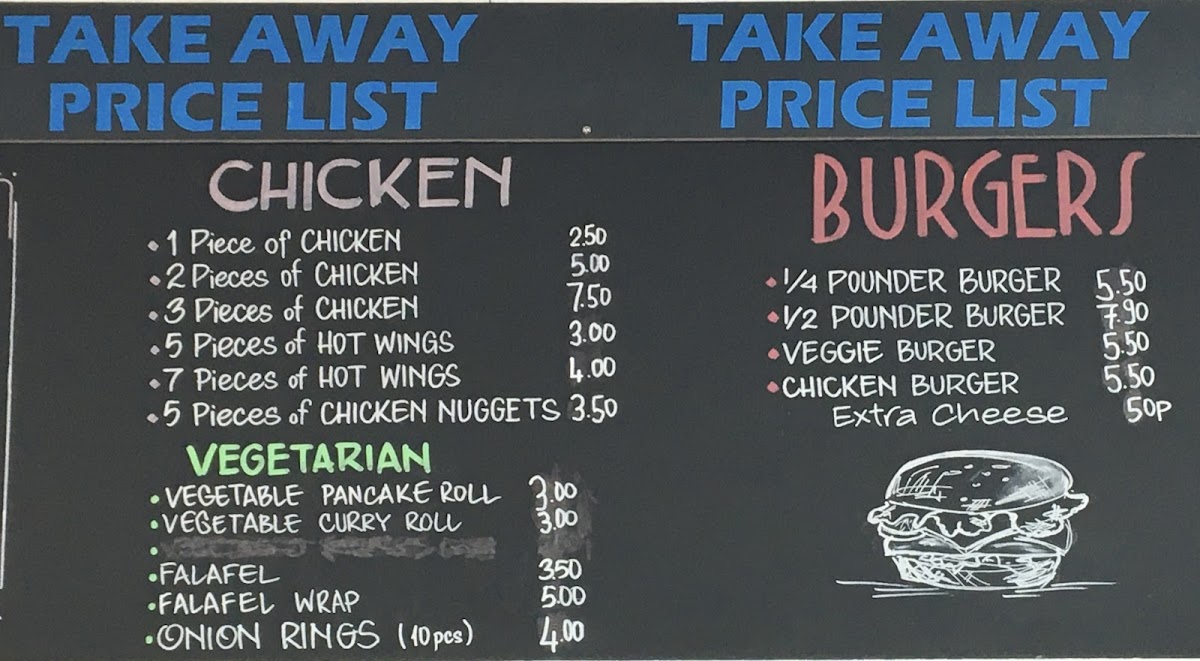 TAKE AWAY
PRICE LIST
CHICKEN
1 Piece of CHICKEN 2.50
2 Pieces of CHICKEN 5.00
3 Pieces of CHICKEN 7.50
5 Pieces of HOT WINGS 3.00
7 Pieces of HOT WINGS 4.00
5 Pieces of CHICKEN NUGGETS 3.50
VEGETARIAN
VEGETABLE PANCAKE ROLL 3.00
VEGETABLE CURRY ROLL 3.00
FALAFEL 3.50
FALAFEL WRAP 5.00
ONION RINGS (10 pcs) 4.00
TAKE AWAY
PRICE LIST
BURGERS
1/4 POUNDER BURGER 5.50
1/2 POUNDER BURGER 7.90
VEGGIE BURGER 5.50
CHICKEN BURGER 5.50
Extra Cheese 50p